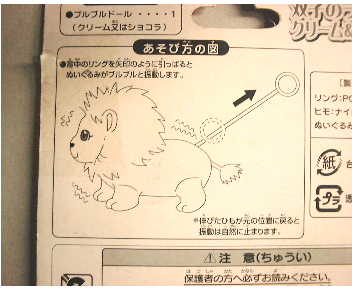 ●ブルブルドール・・・・1
(クリーム又はショコラ)
双子のラ
クリーム&
あそび方の図
●背中のリングを矢印のように引っぱると
ぬいぐるみがブルブルと振動します。
※伸びたひもが元の位置に戻ると
振動は自然に止まります。
〔製
リング:PC
ヒモ:ナイ
ぬいぐるみ
紙
プラ
⚠注 意(ちゅうい)
保護者の方へ必ずお読みください。